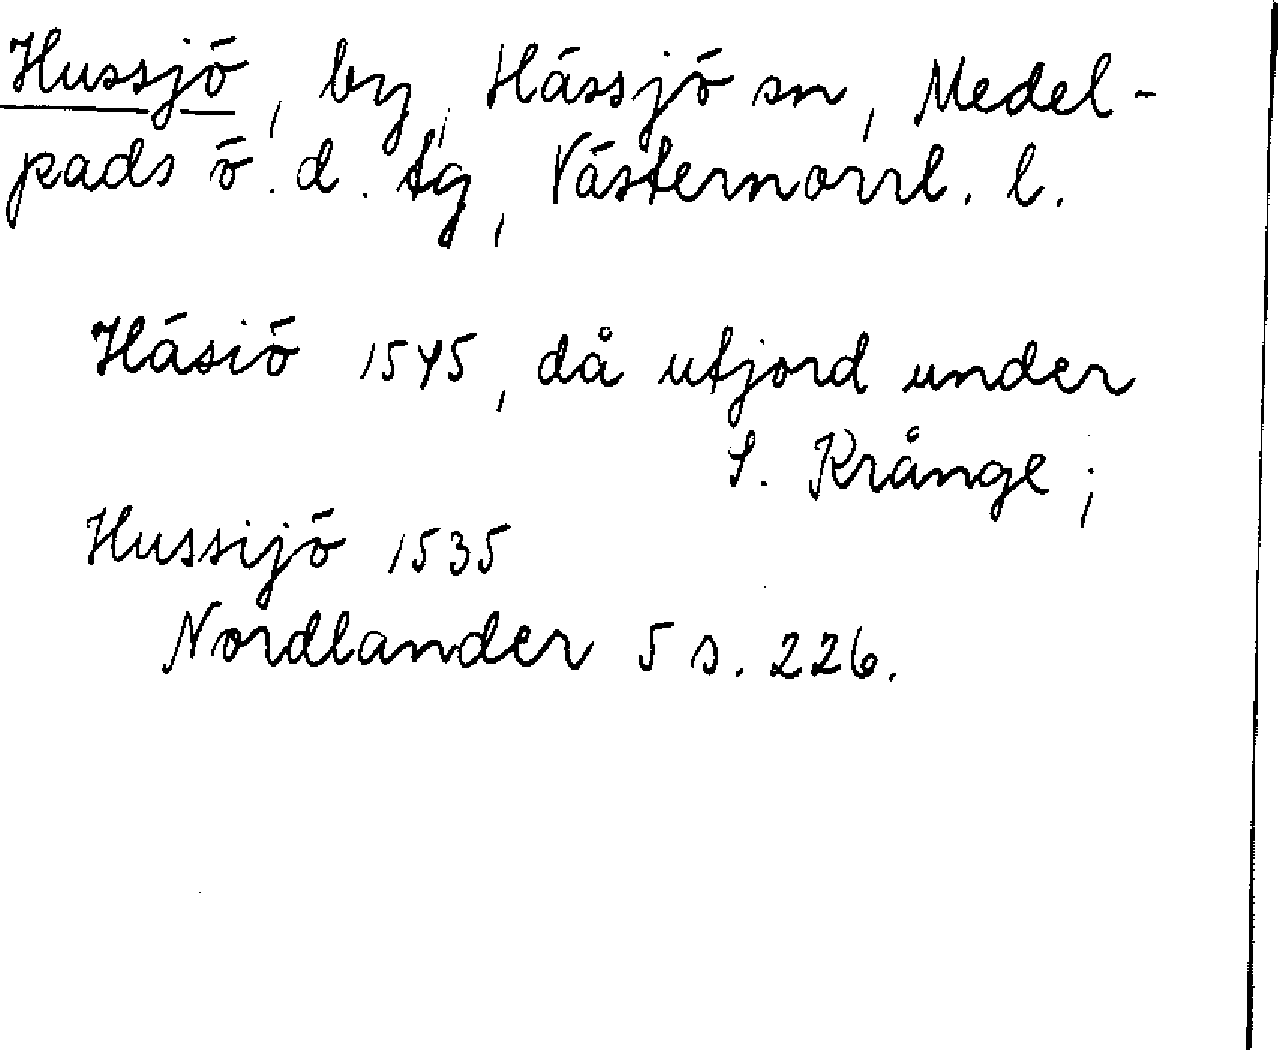 Hussjö, by, Hässjö sn, Medel-
pads ö. d. tg, Västernorrl. l.
Häsiö 1545, då utjord under
S. Krånge;
Hussijö 1535
Nordlander 5 s. 226.